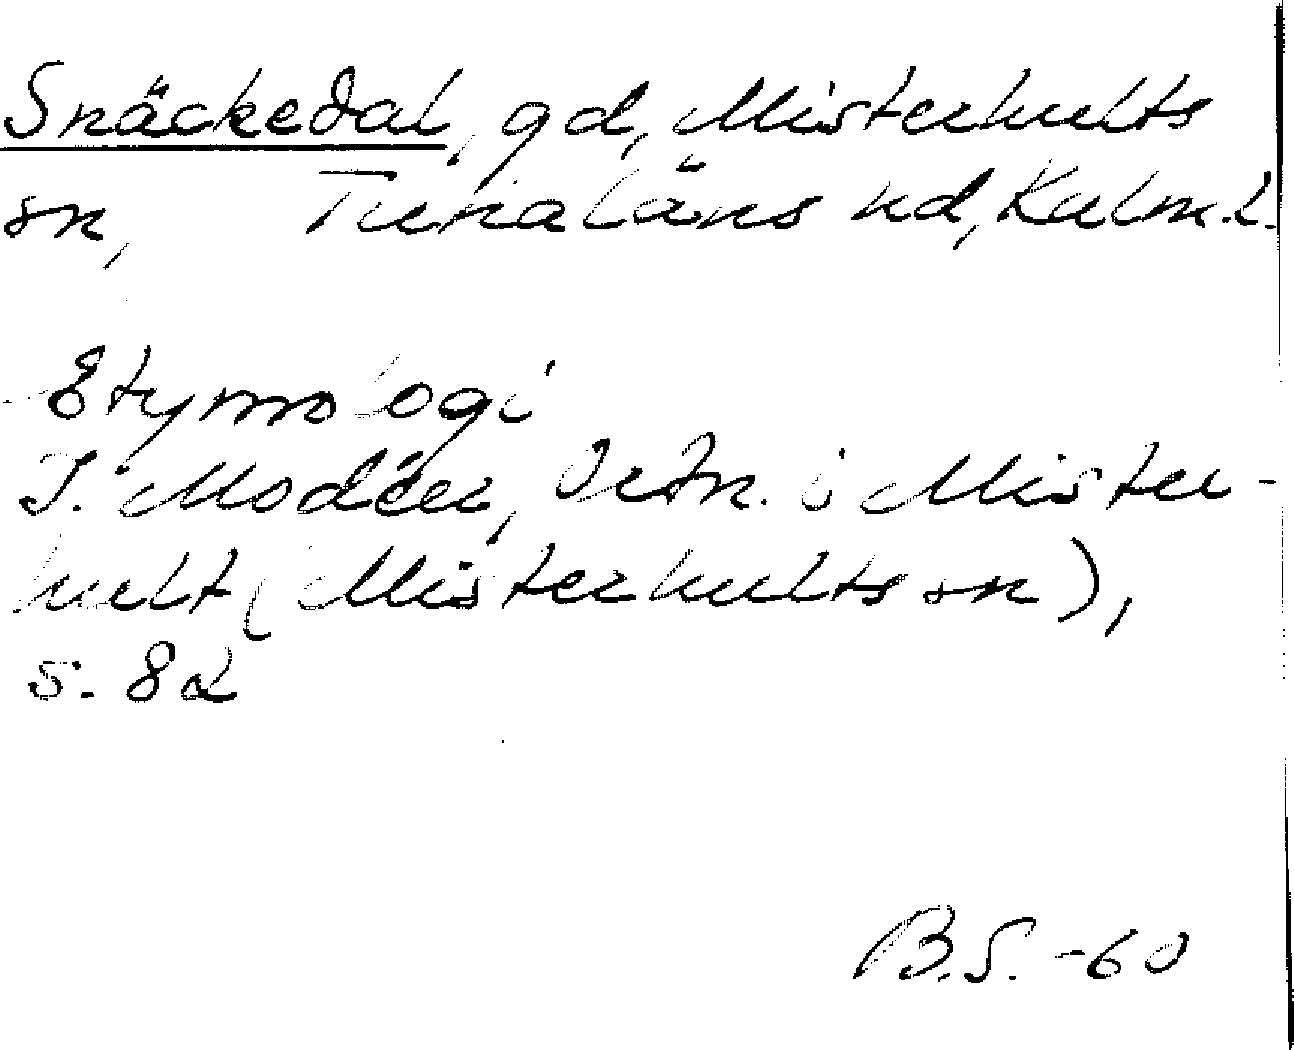 Snäckedal, gd, Misterhults
sn, Tunaläns hd, Kalm. l.
Etymologi
I. Modéer, Ortn. i Mister-
hult (Misterhults sn),
s. 82
B.S. -60